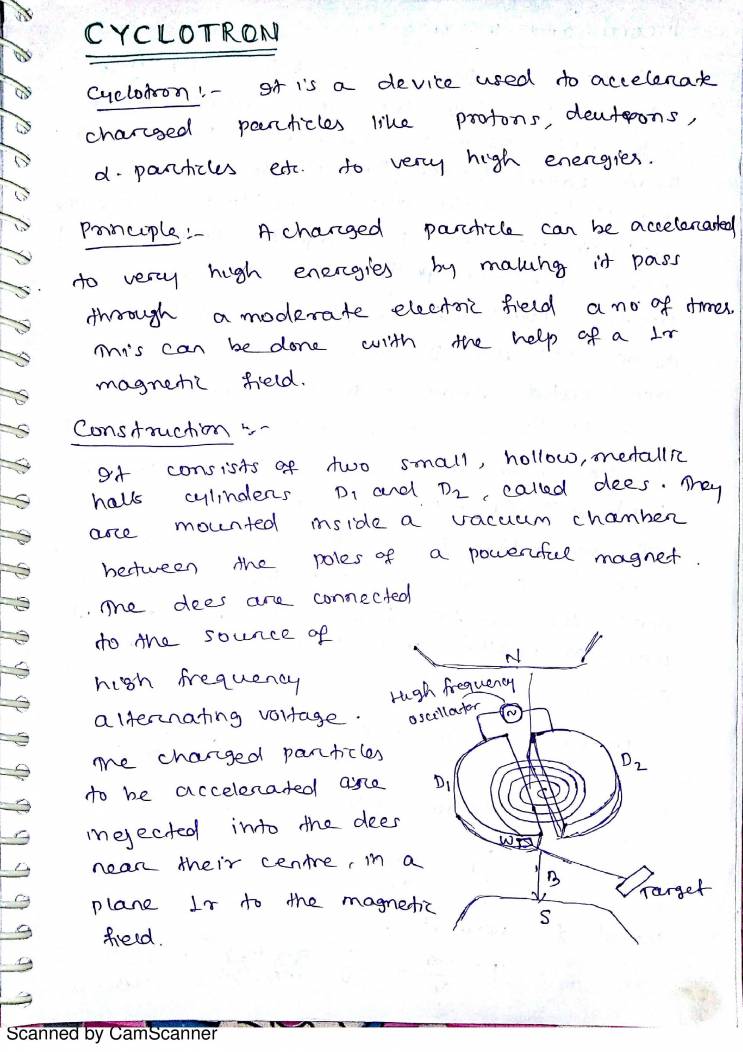 CYCLOTRON
Cyclotron :- It is a device used to accelerate
charged particles like protons, deuterons,
α- particles etc. to very high energies.
Principle :- A charged particle can be accelerated
to very high energies by making it pass
through a moderate electric field a no of times.
This can be done with the help of a ⊥r
magnetic field.
Construction :-
It consists of two small, hollow, metallic
half cylinders D1 and D2, called dees. They
are mounted inside a vacuum chamber
between the poles of a powerful magnet.
The dees are connected
to the source of
high frequency
alternating voltage.
The charged particles
to be accelerated are
inejected into the dees
near their centre, in a
plane ⊥r to the magnetic
field.
N
High frequency
oscillator
~
D1
D2
W
B
Target
S
Scanned by CamScanner